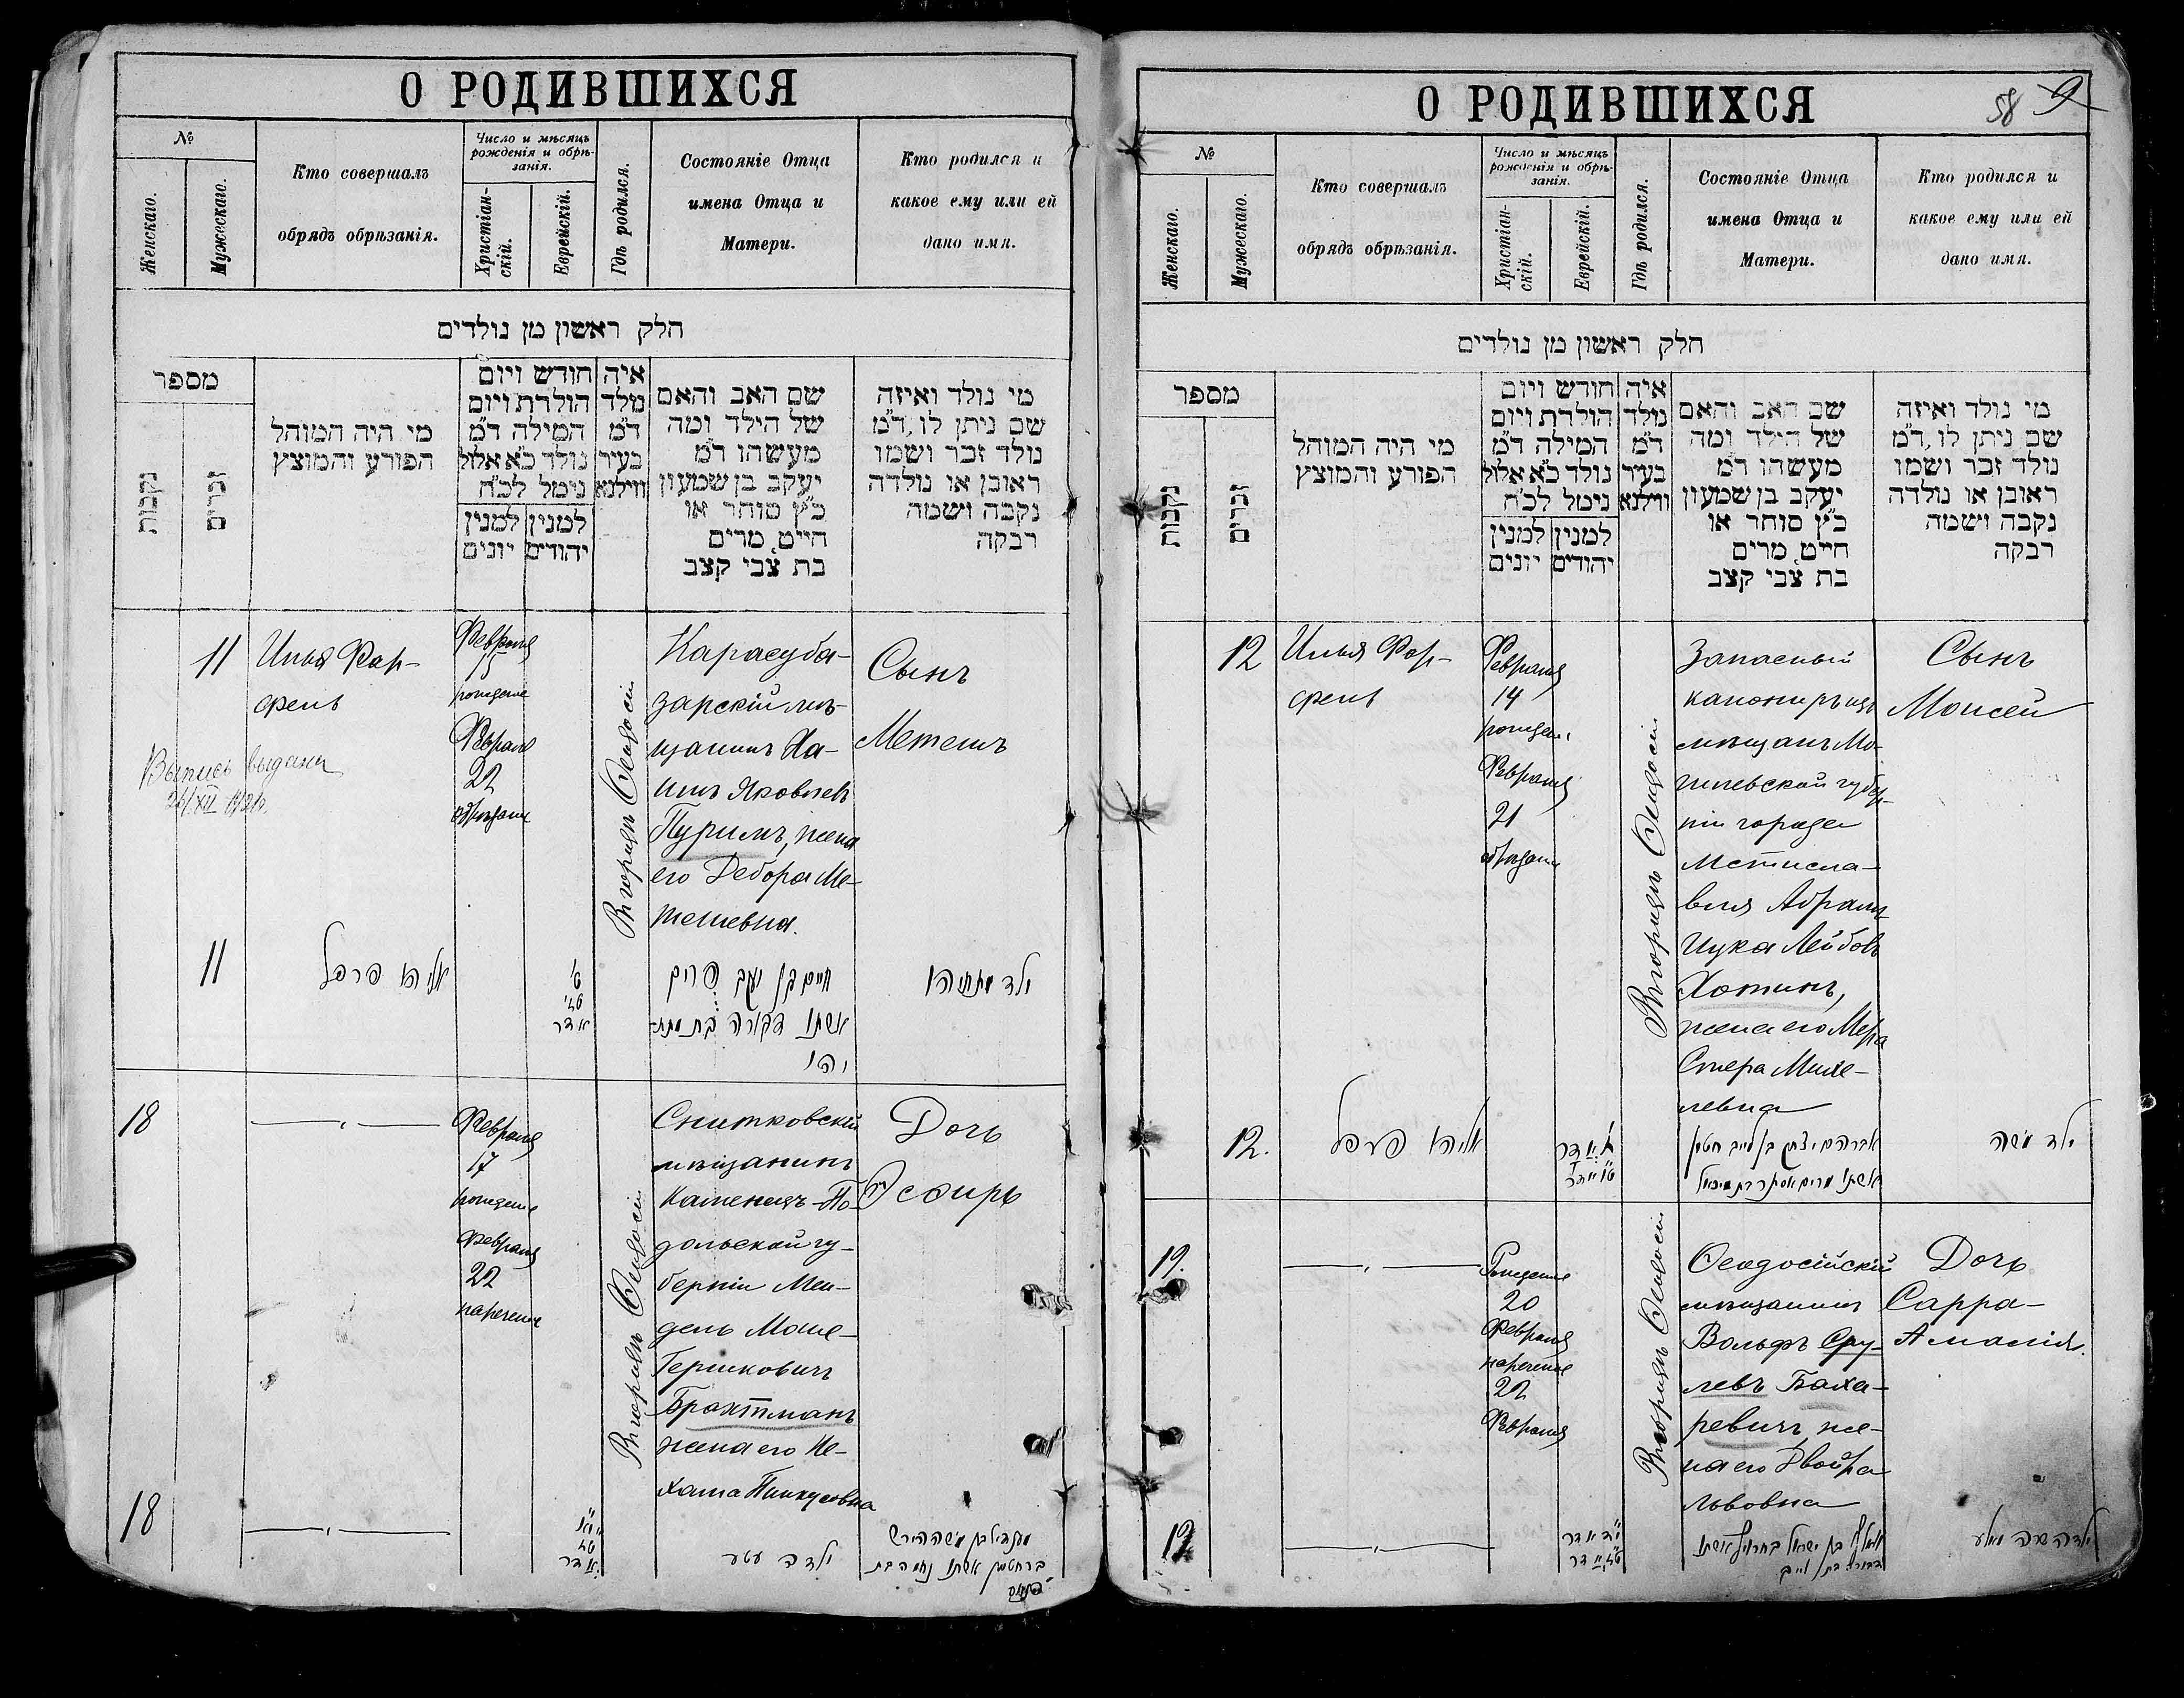 О РОДИВШИХСЯ
№
Женскаго.
Мужескаго.
Кто совершалъ
обрядъ обрѣзанія.
Число и мѣсяцъ
рожденія и обрѣ-
занія.
Христіан-
скій.
Еврейскій.
Гдѣ родился.
Состояніе Отца
имена Отца и
Матери.
Кто родился и
какое ему или ей
дано имя.
חלק ראשון מן נולדים
מספר
נקבות
זכרים
מי היה המוהל
הפורע והמוצץ
חודש ויום
הולדת ויום
המילה ד״מ
נולד כ״א אלול
נימל לכ״ח
למנין למנין
יהודים יונים
איה
נולד
ד״מ
בעיר
ווילנא
שם האב והאם
של הילד ומה
מעשהו ד״מ
יעקב בן שמעון
כ״ץ סוחר או
חייט, מרים
בת צבי קצב
מי נולד ואיזה
שם ניתן לו, ד״מ
נולד זכר ושמו
ראובן או נולדה
נקבה ושמה
רבקה
11
Илья Фар-
фель
Выпись выдана
Февраля
15
рожденіе
Февраля
22
обрѣзаніе
Въ городѣ Ѳеодосіи
Карасуба-
зарскій мѣ-
щанинъ Ха-
имъ Яковлевъ
Пуримъ, жена
его Дебора Ме-
тешевна.
Сынъ
Метешъ
11
אליהו פרפל
אדר
חיים בן יעקב פורים
אשתו דבורה בת מתת-
יהו
ילד מתתיהו
18
Февраля
17
рожденіе
Февраля
22
нареченіе
Въ городѣ Ѳеодосіи
Снитковскій
мѣщанинъ
Каменецъ-По-
дольской гу-
берніи Мен-
дель Моше-
Гершковичъ
Брахтманъ
жена его Не-
хама Пинкусовна
Дочь
Эсѳирь
18
אדר
ילדה
מענדיל בן משה הירש
ברחטמן אשתו נחמה בת
О РОДИВШИХСЯ
58 9
№
Женскаго.
Мужескаго.
Кто совершалъ
обрядъ обрѣзанія.
Число и мѣсяцъ
рожденія и обрѣ-
занія.
Христіан-
скій.
Еврейскій.
Гдѣ родился.
Состояніе Отца
имена Отца и
Матери.
Кто родился и
какое ему или ей
дано имя.
חלק ראשון מן נולדים
מספר
נקבות
זכרים
מי היה המוהל
הפורע והמוצץ
חודש ויום
הולדת ויום
המילה ד״מ
נולד כ״א אלול
נימל לכ״ח
למנין למנין
יהודים יונים
איה
נולד
ד״מ
בעיר
ווילנא
שם האב והאם
של הילד ומה
מעשהו ד״מ
יעקב בן שמעון
כ״ץ סוחר או
חייט, מרים
בת צבי קצב
מי נולד ואיזה
שם ניתן לו, ד״מ
נולד זכר ושמו
ראובן או נולדה
נקבה ושמה
רבקה
12
Илья Фар-
фель
Февраля
14
рожденіе
Февраля
21
обрѣзаніе
Въ городѣ Ѳеодосіи
Запасный
канониръ изъ
мѣщанъ Мо-
гилевской губер-
ніи города
Мстисла-
вля Абрамъ
Ицка Лейбовъ
Хотинъ,
жена его Мера
Стера Михе-
левна
Сынъ
Моисей
12.
אליהו פרפל
אדר
אברהם יצחק בן לייב חטין
אשתו מרים אסתר בת מיכאל
ילד משה
19.
Рожденіе
20
Февраля
нареченіе
22
Февраля
Въ городѣ Ѳеодосіи
Ѳеодосійскій
мѣщанинъ
Вольфъ Сру-
левъ Баха-
ревичъ, же-
на его Двойра
Львовна
Дочь
Сарра-
Амалія.
אדר
בן ישראל
אשתו
דבורה בת לייב
ילדה שרה